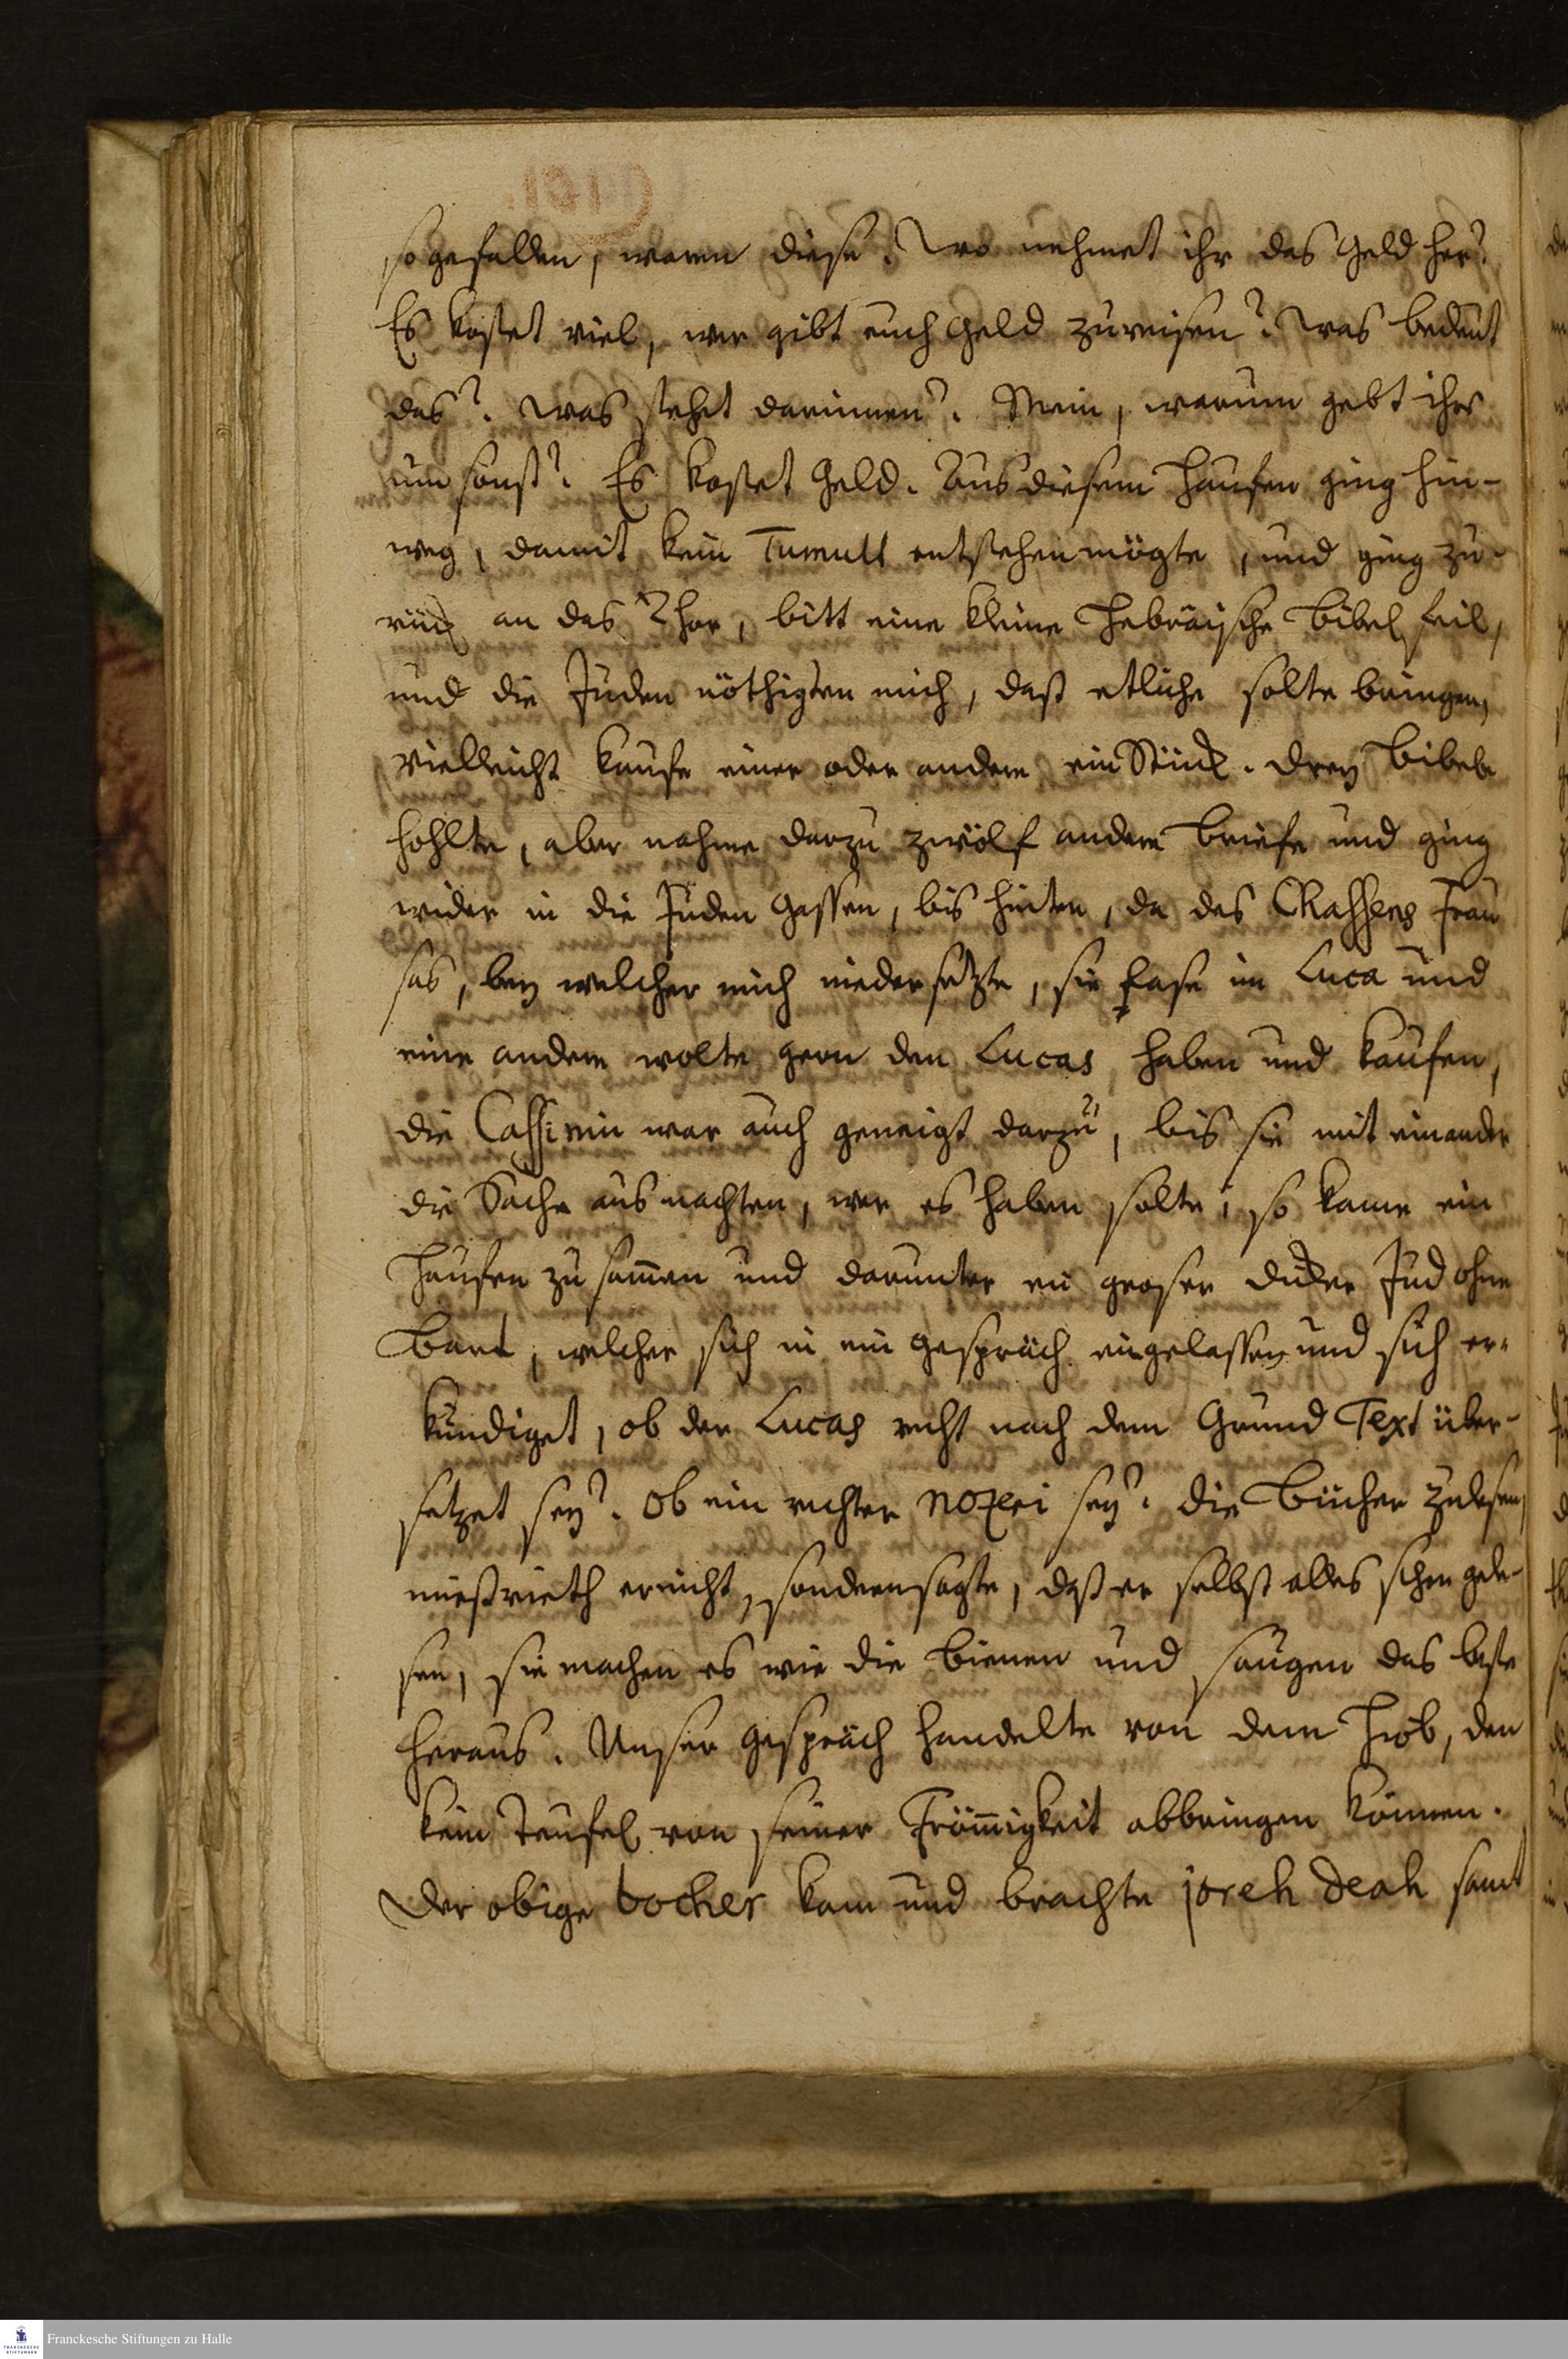 so gefallen, waren diese: Wo nehmet ihr das Geld her?
Es kostet viel, wer gibt euch Geld zu reisen? Was bedeut
das? Was stehet darinnen? Mein, warum gebt ihrs
um sonst? Es kostet Geld. Aus diesem Haufen ging hin-
weg, damit kein Tumult entstehen mögte, und ging zu-
rück an das Thor, bitt eine kleine Hebräische Bibel feil,
und die Juden nöthigten mich, daß etliche solte bringen,
vielleicht kaufe einer oder andere ein Stück. Drey Bibeln
hohlte, aber nahme darzu zwölf andere Briefe und ging
wider in die Juden Gassen, bis hinten, da des Frau
sas, bey welcher mich niedersetzte, sie lase im Luca und
eine andere wolte gern den Lucas haben und kaufen,
die war auch geneigt darzu, bis sie mit einander
die Sache ausmachten, wer es haben solte, so kame ein
Haufen zusammen und darunter ein groser dicker Jud ohne
Bart, welcher sich in ein Gespräch eingelassen und sich er-
kundiget, ob der Lucas recht nach dem Grund Text über-
setzet sey? Ob ein rechter nozri sey? die Bücher zulesen,
misrieth er nicht, sondern sagte, daß er selbst alles schon gele-
sen, sie machen es wie die Bienen und saugen das beste
heraus. Unser Gespräch handelte von dem Hiob, den
kein Teufel von seiner Frömmigkeit abbringen können.
Der obige bocher kam und brachte joreh deah samt
Franckesche Stiftungen zu Halle